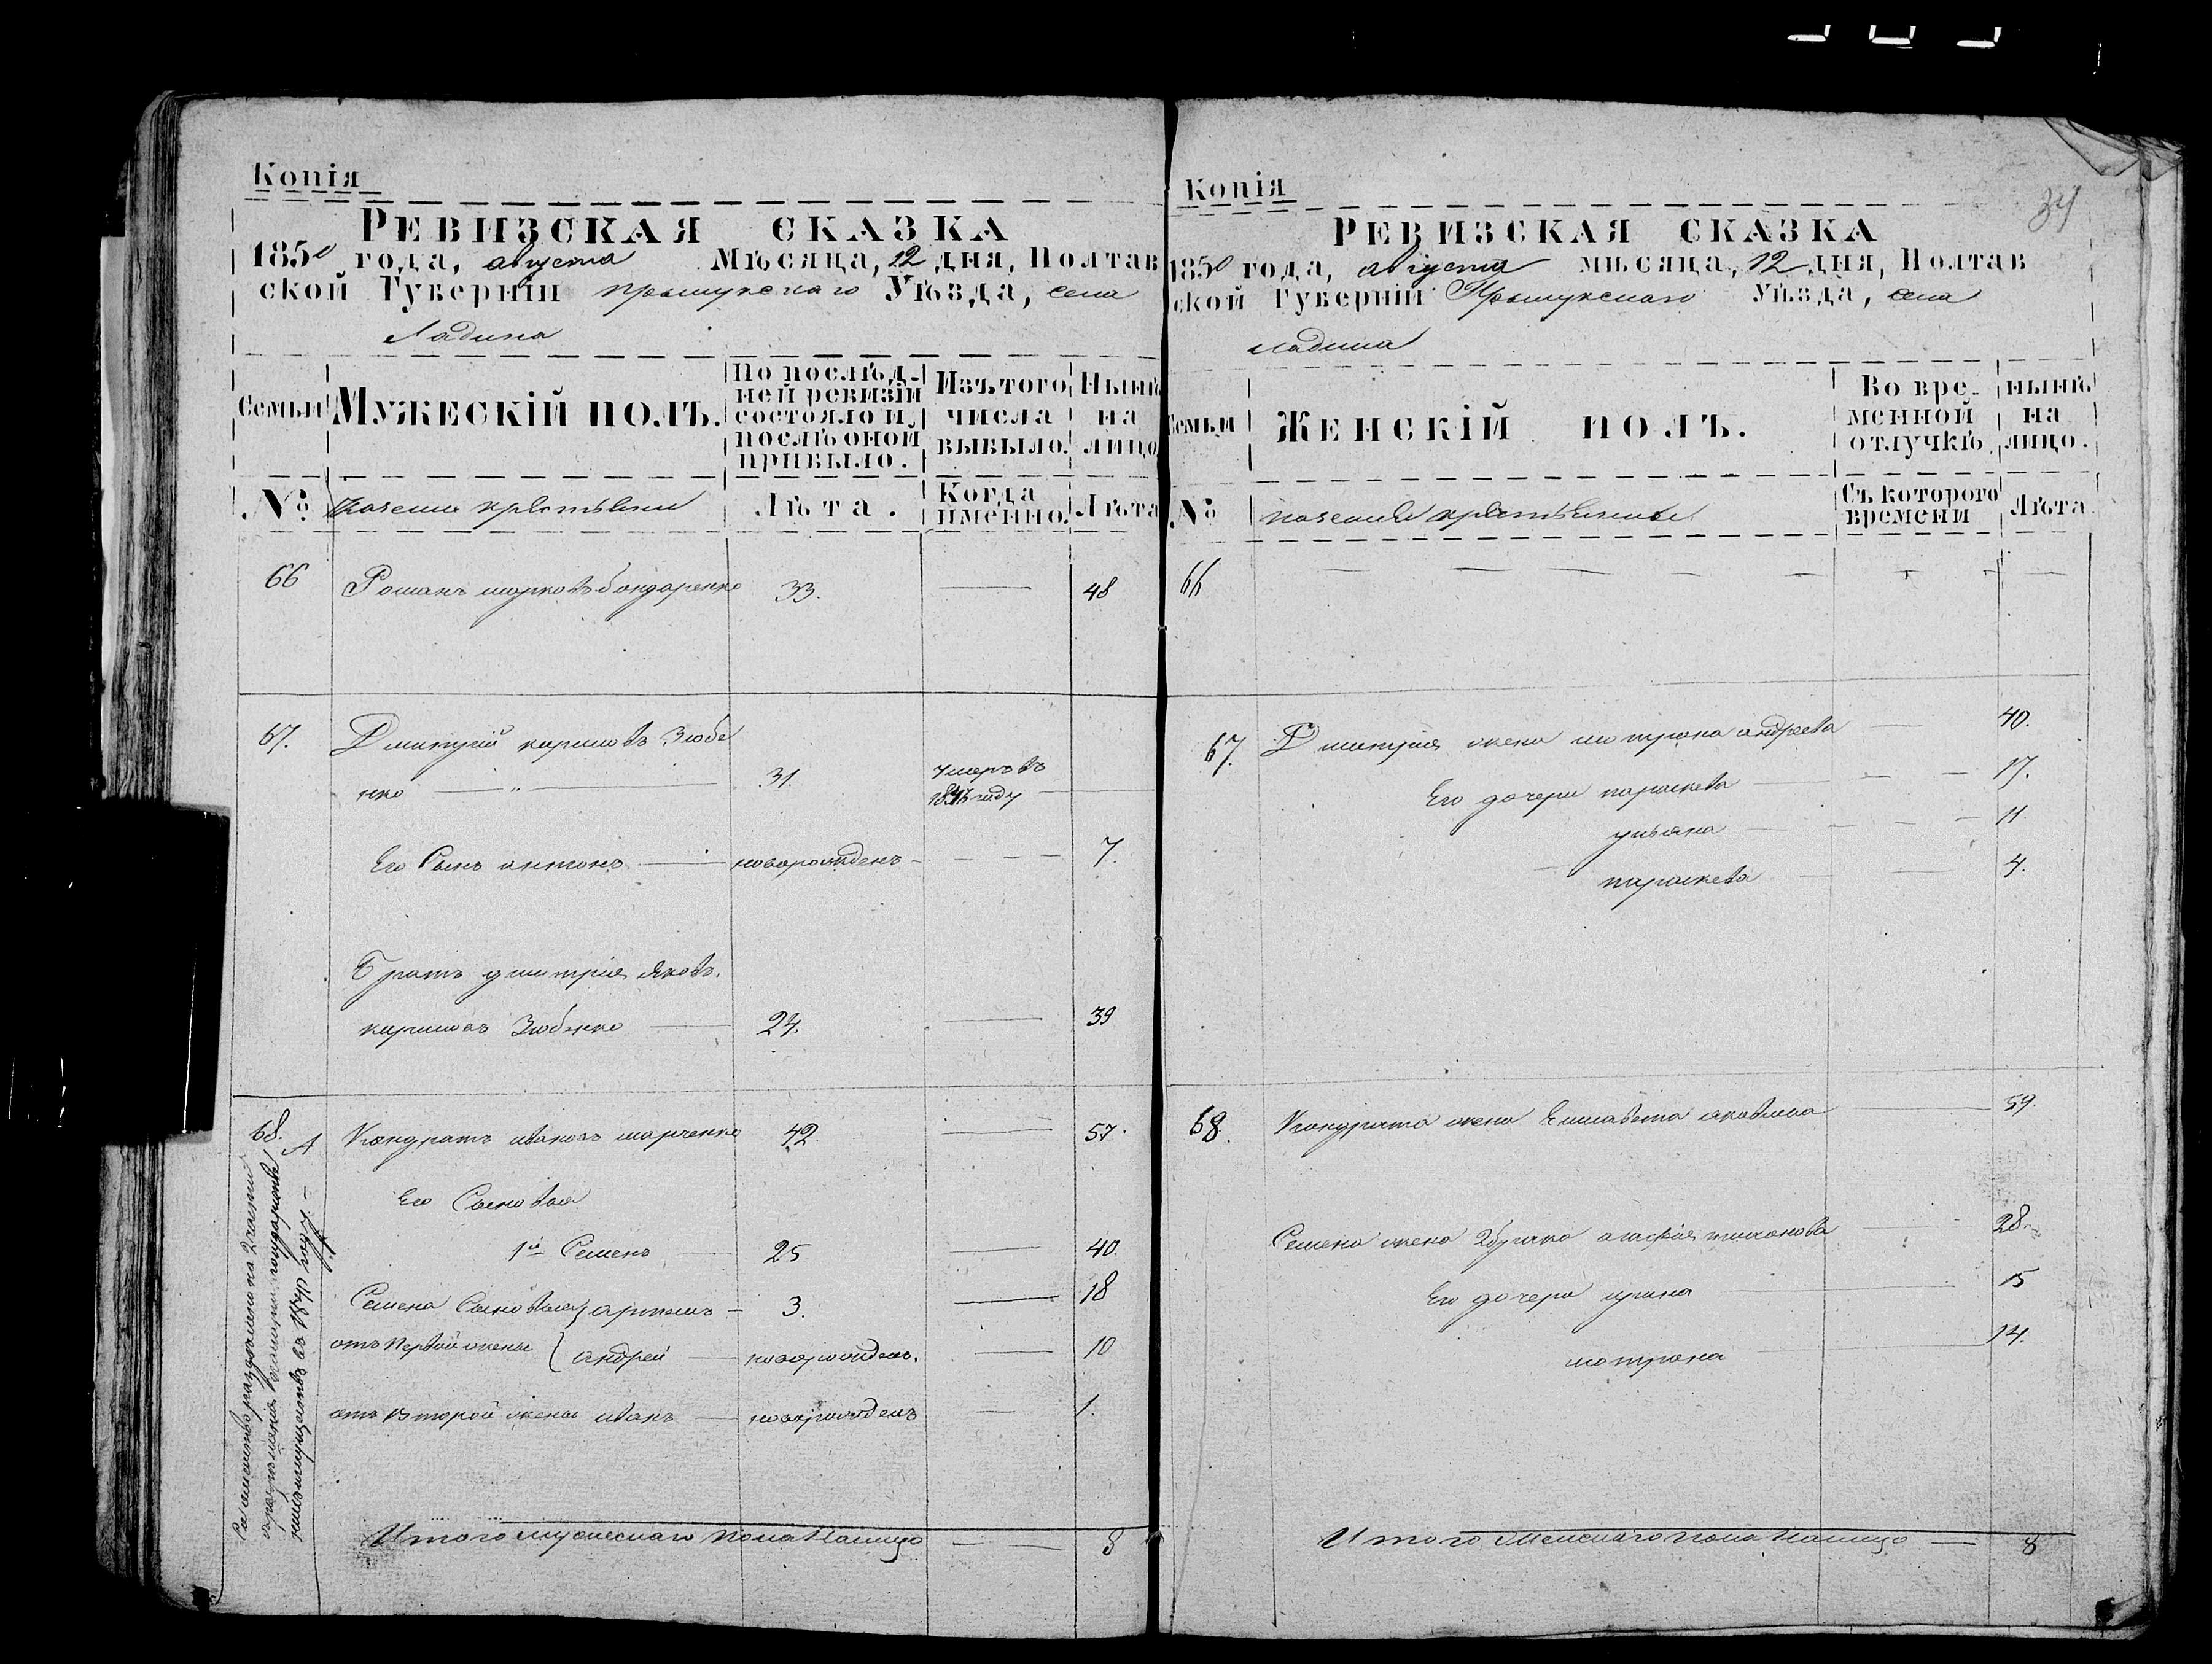 Копія
РЕВИЗСКАЯ СКАЗКА
1850 года, августа Мѣсяца, 12 дня, Полтав
ской Губерніи прылукскаго Уѣзда, села
Ладина
Семьи
МУЖЕСКІЙ ПОЛЪ.
По послѣд-
ней ревизіи
состояло и
послѣ оной
прибыло.
Изъ того
числа
выбыло.
Нынѣ
на
лицо
№
казенные крестьяне
Лѣта.
Когда
именно.
Лѣта
66 Романъ марковъ бондаренко 33. — 48
67. Дмитрій каришовъ Зюбе
нко — „ — 31. умеръ въ
году
Его Сынъ антонъ — новорожденъ — 7.
Братъ дмитрія яковъ.
Зюбенко — 24. — 39
68. А Кондратъ ивановъ марченко 42. — 57.
Его Сыновья
1й Семенъ 25 — 40.
Семена Сыновья артемъ — 3. — 18
отъ Первой жены андрей — новорожденъ. — 10
отъ Второй жены иванъ — новорожденъ — 1.
Сіе семейство раздѣлено на 2 части
Итого мужескаго пола Налицо — 8
Копія
34
РЕВИЗСКАЯ СКАЗКА
1850 года, августа мѣсяца, 12 дня, Полтав
ской Губерніи Прылукскаго Уѣзда, села
ладина
Семьи
ЖЕНСКІЙ ПОЛЪ.
Во вре-
менной
отлучкѣ.
нынѣ
на
лицо.
№
казенные крестьянки
Съ котораго
времени
Лѣта
66
67. Дмитрія жена мотрона андреева — 40.
Его дочери параскева — 17.
ульяна — 11.
параскева — 4.
68. Кондрата жена Елисавета яковлева — 59.
Семена жена 2 бурачка агафія тихонова — 28.
Его дочери ирина — 15
мотрона — 14.
Итого Женскаго пола Налицо — 8